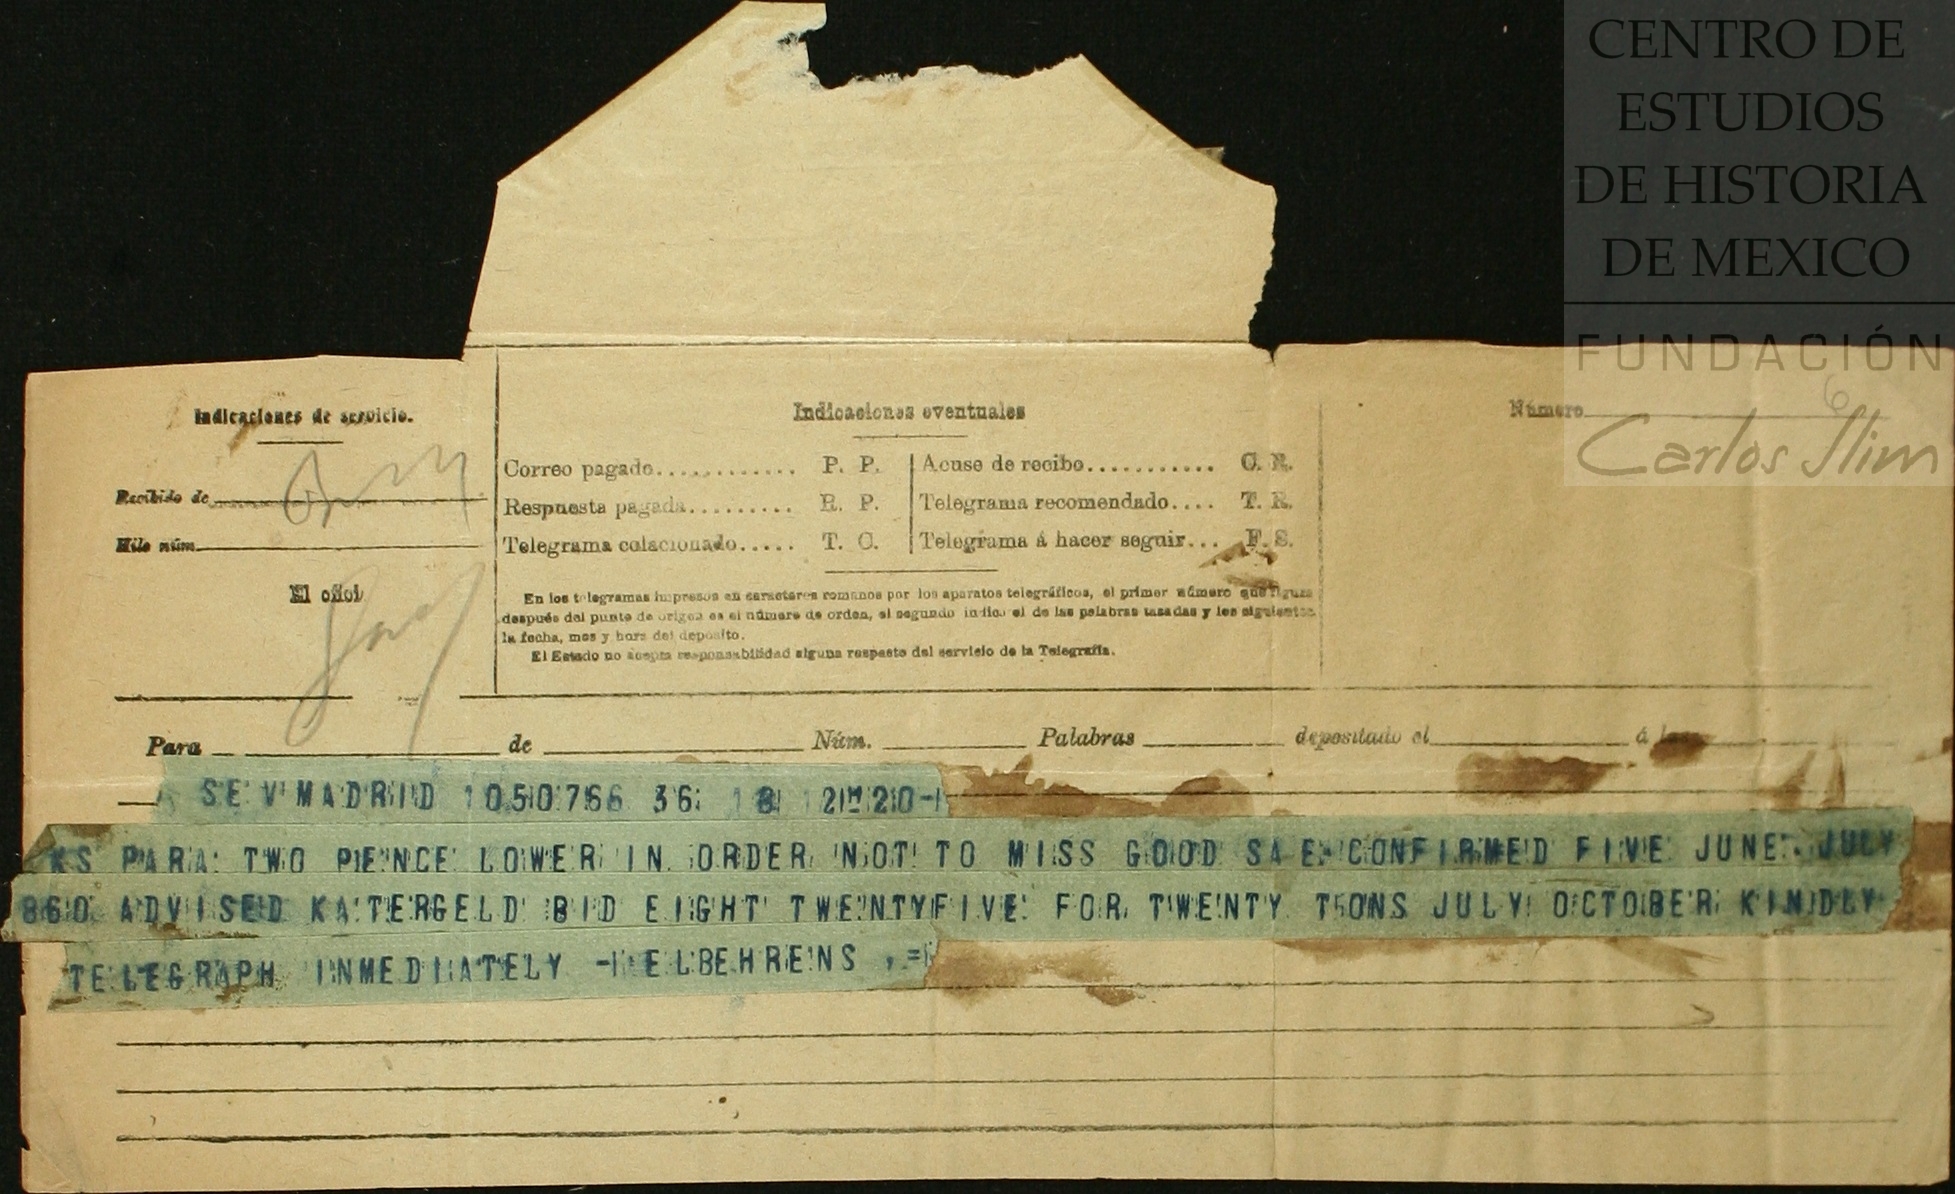 CENTRO DE
ESTUDIOS
DE HISTORIA
DE MEXICO
FUNDACIÓN
Carlos Slim
Indicaciones de servicio.
Recibido de
Hilo núm.
El ofici
Indicaciones eventuales
Correo pagado............ P. P.
Respuesta pagada......... R. P.
Telegrama colacionado..... T. C.
Acuse de recibo........... C. R.
Telegrama recomendado.... T. R.
Telegrama á hacer seguir... F. S.
En los telegramas impresos en caracteres romanos por los aparatos telegráficos, el primer número que figura
después del punto de origen es el número de orden, el segundo indica el de las palabras tasadas y los siguientes
la fecha, mes y hora del depósito.
El Estado no acepta responsabilidad alguna respecto del servicio de la Telegrafía.
Número
6
Para de Núm. Palabras depositado el á las
SE V MADRID 1050766 36 18 12M20-
KS PARA TWO PENCE LOWER IN ORDER NOT TO MISS GOOD SA E CONFIRMED FIVE JUNE JULY
860 ADVISED KATERGELD BID EIGHT TWENTYFIVE FOR TWENTY TONS JULY OCTOBER KINDLY
TELEGRAPH INMEDIATELY - ELBEHRENS , =